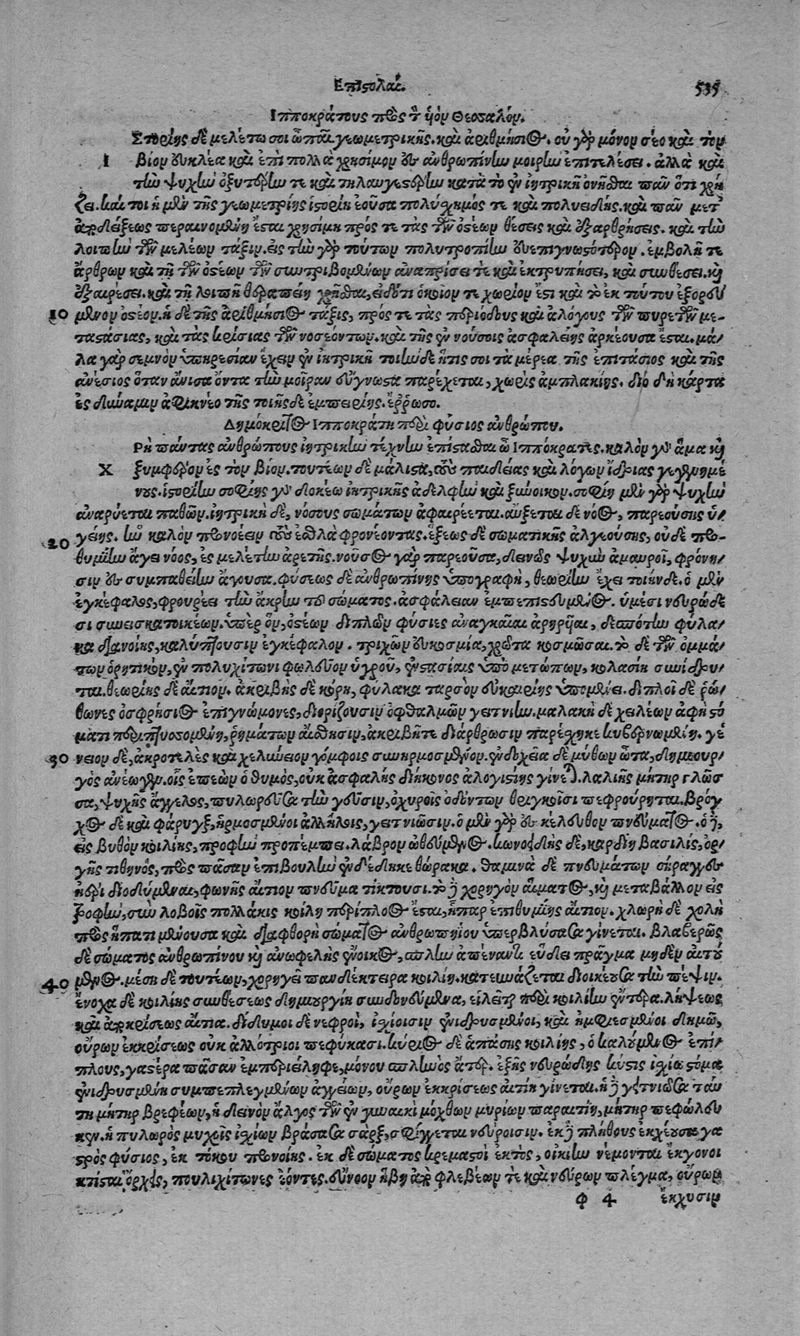 Επιστολαί. 535
Ιπποκράτους πρὸς τὸν ὑὸν Θεσσαλόν.
Ιστορίης δὲ μελέτω σοι ὦ παῖ γεωμετρικῆς. καὶ ἀριθμήσιος. οὐ γὰρ μόνον σέο καὶ τὸν
βίον εὐκλέα καὶ ἐπὶ πολλὰ χρήσιμον ἐς ἀνθρωπίνην μοίρην ἐπιτελέσει. ἀλλὰ καὶ
τὴν ψυχὴν ὀξυτέρην τε καὶ τηλαυγεστέρην κατὰ τὸ ἐν ἰητρικῇ ὀνῆσθαι πᾶν ὅτι χρή
ζει. καί τοι ἡ μὲν τῆς γεωμετρίης ἱστορίη ἐοῦσα πολύσχημός τε καὶ πολυειδής. καὶ πᾶν μετ'
ἀποδείξεως περαινομένη ἔσται χρησίμη πρός τε τὰς τῶν ὀστέων θέσεις καὶ ἐξαρθρήσεις. καὶ τὴν
λοιπὴν τῶν μελέων τάξιν. εἰς τὴν γὰρ τούτων πολυτροπίην εὐεπιγνωστότερον. ἐμβολῇ τε
ἄρθρων καὶ τῇ τῶν ὀστέων τῶν συντριβομένων ἀναπρίσει τε καὶ ἐκτρυπήσει, καὶ συνθέσει. καὶ
ἐξαιρέσει. καὶ τῇ λοιπῇ θεραπείῃ χρῆσθαι, εἰδότι ὁκοῖον τι χωρίον ἐστὶ καὶ τὸ ἐκ τούτου ἐξορευ
10 μενον ὀστέον. ἡ δὲ τῆς ἀριθμήσιος τάξις, πρός τε τὰς περιόδους καὶ ἀλόγους τῶν πυρετῶν με-
τασtάσιας, καὶ τὰς κρίσιας τῶν νοσεόντων. καὶ τῆς ἐν νούσοις ἀσφαλείης ἀρκέουσα ἔσται. μά/
λα γὰρ σεμνὸν ὑπηρεσίαν ἔχειν ἐν ἰητρικῇ τοιήνδε ἥτις σοι τὰ μέρεα τῆς ἐπιτάσιος καὶ τῆς
ἀνέσιος ὅταν ἄνισα ὄντα τὴν μοῖραν εὔγνωστα παρέχεται, χωρὶς ἀμπλακίης. διὸ δὴ κάρτα
ἐς δύναμιν ἀφικνέο τῆς τοιῆσδε ἐμπειρίης. ἔρρωσο.
Δημόκριτος Ιπποκράτῃ περὶ φύσιος ἀνθρώπου.
Ρὴ πάντας ἀνθρώπους ἰητρικὴν τέχνην ἐπίστασθαι ὦ Ιππόκρατες. καλὸν γὰρ ἅμα καὶ
Χ ξυμφέρον ἐς τὸν βίον. τουτέων δὲ μάλιστα, τοὺς παιδείας καὶ λόγων ἴδριας γεγενημέ
νους. ἱστορίην σοφίης γὰρ δοκέω ἰητρικῆς ἀδελφὴν καὶ ξύνοικον. σοφίη μὲν γὰρ ψυχὴν
ἀναρύεται παθῶν. ἰητρικὴ δὲ, νούσους σωμάτων ἀφαιρέεται. αὔξεται δὲ νόος, παρεούσης ὑ/
20 γείης. ἣν καλὸν προνοέειν τοὺς ἐσθλὰ φρονέοντας. ἕξεως δὲ σωματικῆς ἀλγεούσης, οὐδὲ προ-
θυμίην ἄγει νόος, ἐς μελέτην ἀρετῆς. νοῦσος γὰρ παρεοῦσα, δεινῶς ψυχὴν ἀμαυροῖ, φρόνη/
σιν ἐς συμπαθείην ἄγουσα. φύσεως δὲ ἀνθρωπίνης ὑπογραφὴ, θεωρίην ἔχει τοιήνδε. ὁ μὲν
ἐγκέφαλος, φρουρέει τὴν ἄκρην τοῦ σώματος. ἀσφάλειαν ἐμπεπιστευμένος. ὑμέσι νευρώδε
σι συνεισκατοικέων. ὑπὲρ ὃν, ὀστέων διπλῶν φύσιες ἀναγκαῖαι ἀρηρυῖαι, δεσπότην φύλα/
κα διανοίης, καλύπτουσιν ἐγκέφαλον. τριχῶν εὐκοσμίη, χρῶτα κοσμέουσα. τὸ δὲ τῶν ὀμμά/
των ὁρητικὸν, ἐν πολυχίτωνι φωλεῦον ὑγροῦ, εὐστασίας ὑπὸ μετώπων, κοιλασίη συνίδρυ/
ται. θεωρίης δὲ αἴτιον. ἀκριβὴς δὲ κόρη, φύλακα ταρσὸν εὐκαιρίης ὑπομένει. διπλοῖ δὲ ῥώ/
θωνες ὀσφρήσιος ἐπιγνώμονες, διορίζουσιν ὀφθαλμῶν γειτνίην. μαλακὴ δὲ χειλέων ἁφὴ στό
ματι περιπτυσσομένη, ῥημάτων αἴσθησιν, ἀκριβῆ τε διάρθρωσιν παρέσχηκε κυβερνωμένη. γέ
30 νειον δὲ, ἀκροτελὲς καὶ χελώνειον γόμφοις συνηρμοσμένον. ἐνδοχεῖα δὲ μύθων ὦτα, δημιουρ/
γὸς ἀνέῳγεν. οἷς ἐπεὼν ὁ θυμὸς, οὐκ ἀσφαλὴς διήκονος ἀλογιστίης γίνεται. λαλιῆς μήτηρ γλῶσ
σα, ψυχῆς ἄγγελος, πυλωρεῦσα τὴν γεῦσιν, ὀχυροῖς ὀδόντων θριγκοῖσι πεφρούρηται. βρόγ
χος δὲ καὶ φάρυγξ, ἡρμοσμένοι ἀλλήλοις, γειτνιῶσιν. ὁ μὲν γὰρ ἐς κέλευθον πνεύματος. ὁ δὲ,
εἰς βυθὸν κοιλίης, προφὴν προπέμπει. λάβρον ὠθεύμενος. κωνοειδὴς δὲ, καρδίη βασιλὶς, ὀρ/
γῆς τιθηνὸς, πρὸς πᾶσαν ἐπιβουλὴν ἐνδέδυκε θώρακα. θαμινὰ δὲ πνευμάτων σήραγγες
ἠέρι διοδευόμεναι, φωνῆς αἴτιον πνεῦμα τίκτουσι. τὸ δὲ χορηγὸν αἵματος, καὶ μεταβάλλον εἰς
τροφὴν, σὺν λοβοῖς πολλάκις κοίλη περίπλοος ἔσται, ἧπαρ ἐπιθυμίης αἴτιον. χλωρὴ δὲ χολὴ
πρὸς ἥπατι μένουσα καὶ διαφθορὴ σώματος ἀνθρωπηΐου ὑπερβλύσασα γίνεται. βλαβερὸς
δὲ σώματος ἀνθρωπίνου καὶ ἀνωφελὴς ἔνοικος, σπλὴν ἀπέναντι εὕδει πρᾶγμα μηδὲν αἰτεύ
40 μενος. μέση δὲ τουτέων, χορηγέει πανδέκτειρα κοιλίη. κατευνάζεται διοικεῦσα τὴν πέψιν.
ἔνοχα δὲ κοιλίης συνθέσεως δημιουργίῃ συνδονεύμενα, εἱλεῖται περὶ κοιλίην ἔντερα. λήψεως
καὶ ἀποκρίσεως αἴτια. δίδυμοι δὲ νεφροὶ, ἰσχίοισιν ἐνιδρυσμένοι, καὶ ἠμφιεσμένοι δημῷ,
οὔρων ἐκκρίσεως οὐκ ἀλλότριοι πεφύκασι. κύριος δὲ ἁπάσης κοιλίης, ὁ καλούμενος ἐπί/
πλους, γαστέρα πᾶσαν ἐμπεριείληφε, μόνου σπληνὸς ἄτερ. ἑξῆς νευρώδης κύστις ἰσχίῳ στόμα
ἐνιδρυσμένη συμπεπλεγμένων ἀγγείων, οὔρων ἐκκρίσεως αἰτίη γίνεται. ἡ δὲ γειτνιῶσα ταύ
τῃ μήτηρ βρεφέων, ἡ δεινὸν ἄλγος τῶν ἐν γυναικὶ μόχθων μυρίων παραιτίη, μήτηρ πεφώλευ
κεν. ἡ πυλωρὸς μυχοῖς ἰσχίων βράσασα σὰρξ, σφίγγεται νεύροισιν. ἐκ δὲ πλήθους ἐκχέουσα γα
στρὸς φύσιος, ἐκ τόκου προνοίης. ἐκ δὲ σώματος κρεμαστοὶ ἐκτὸς, οἰκίην νέμονται ἔκγονοι
κτίσται ὄρχιες, πουλυχίτωνες ἐόντες. εὔνοον ἥβῃ ἀπὸ φλεβέων τε καὶ νεύρων πλέγμα, οὔρων
φ 4 ἔκχυσιν